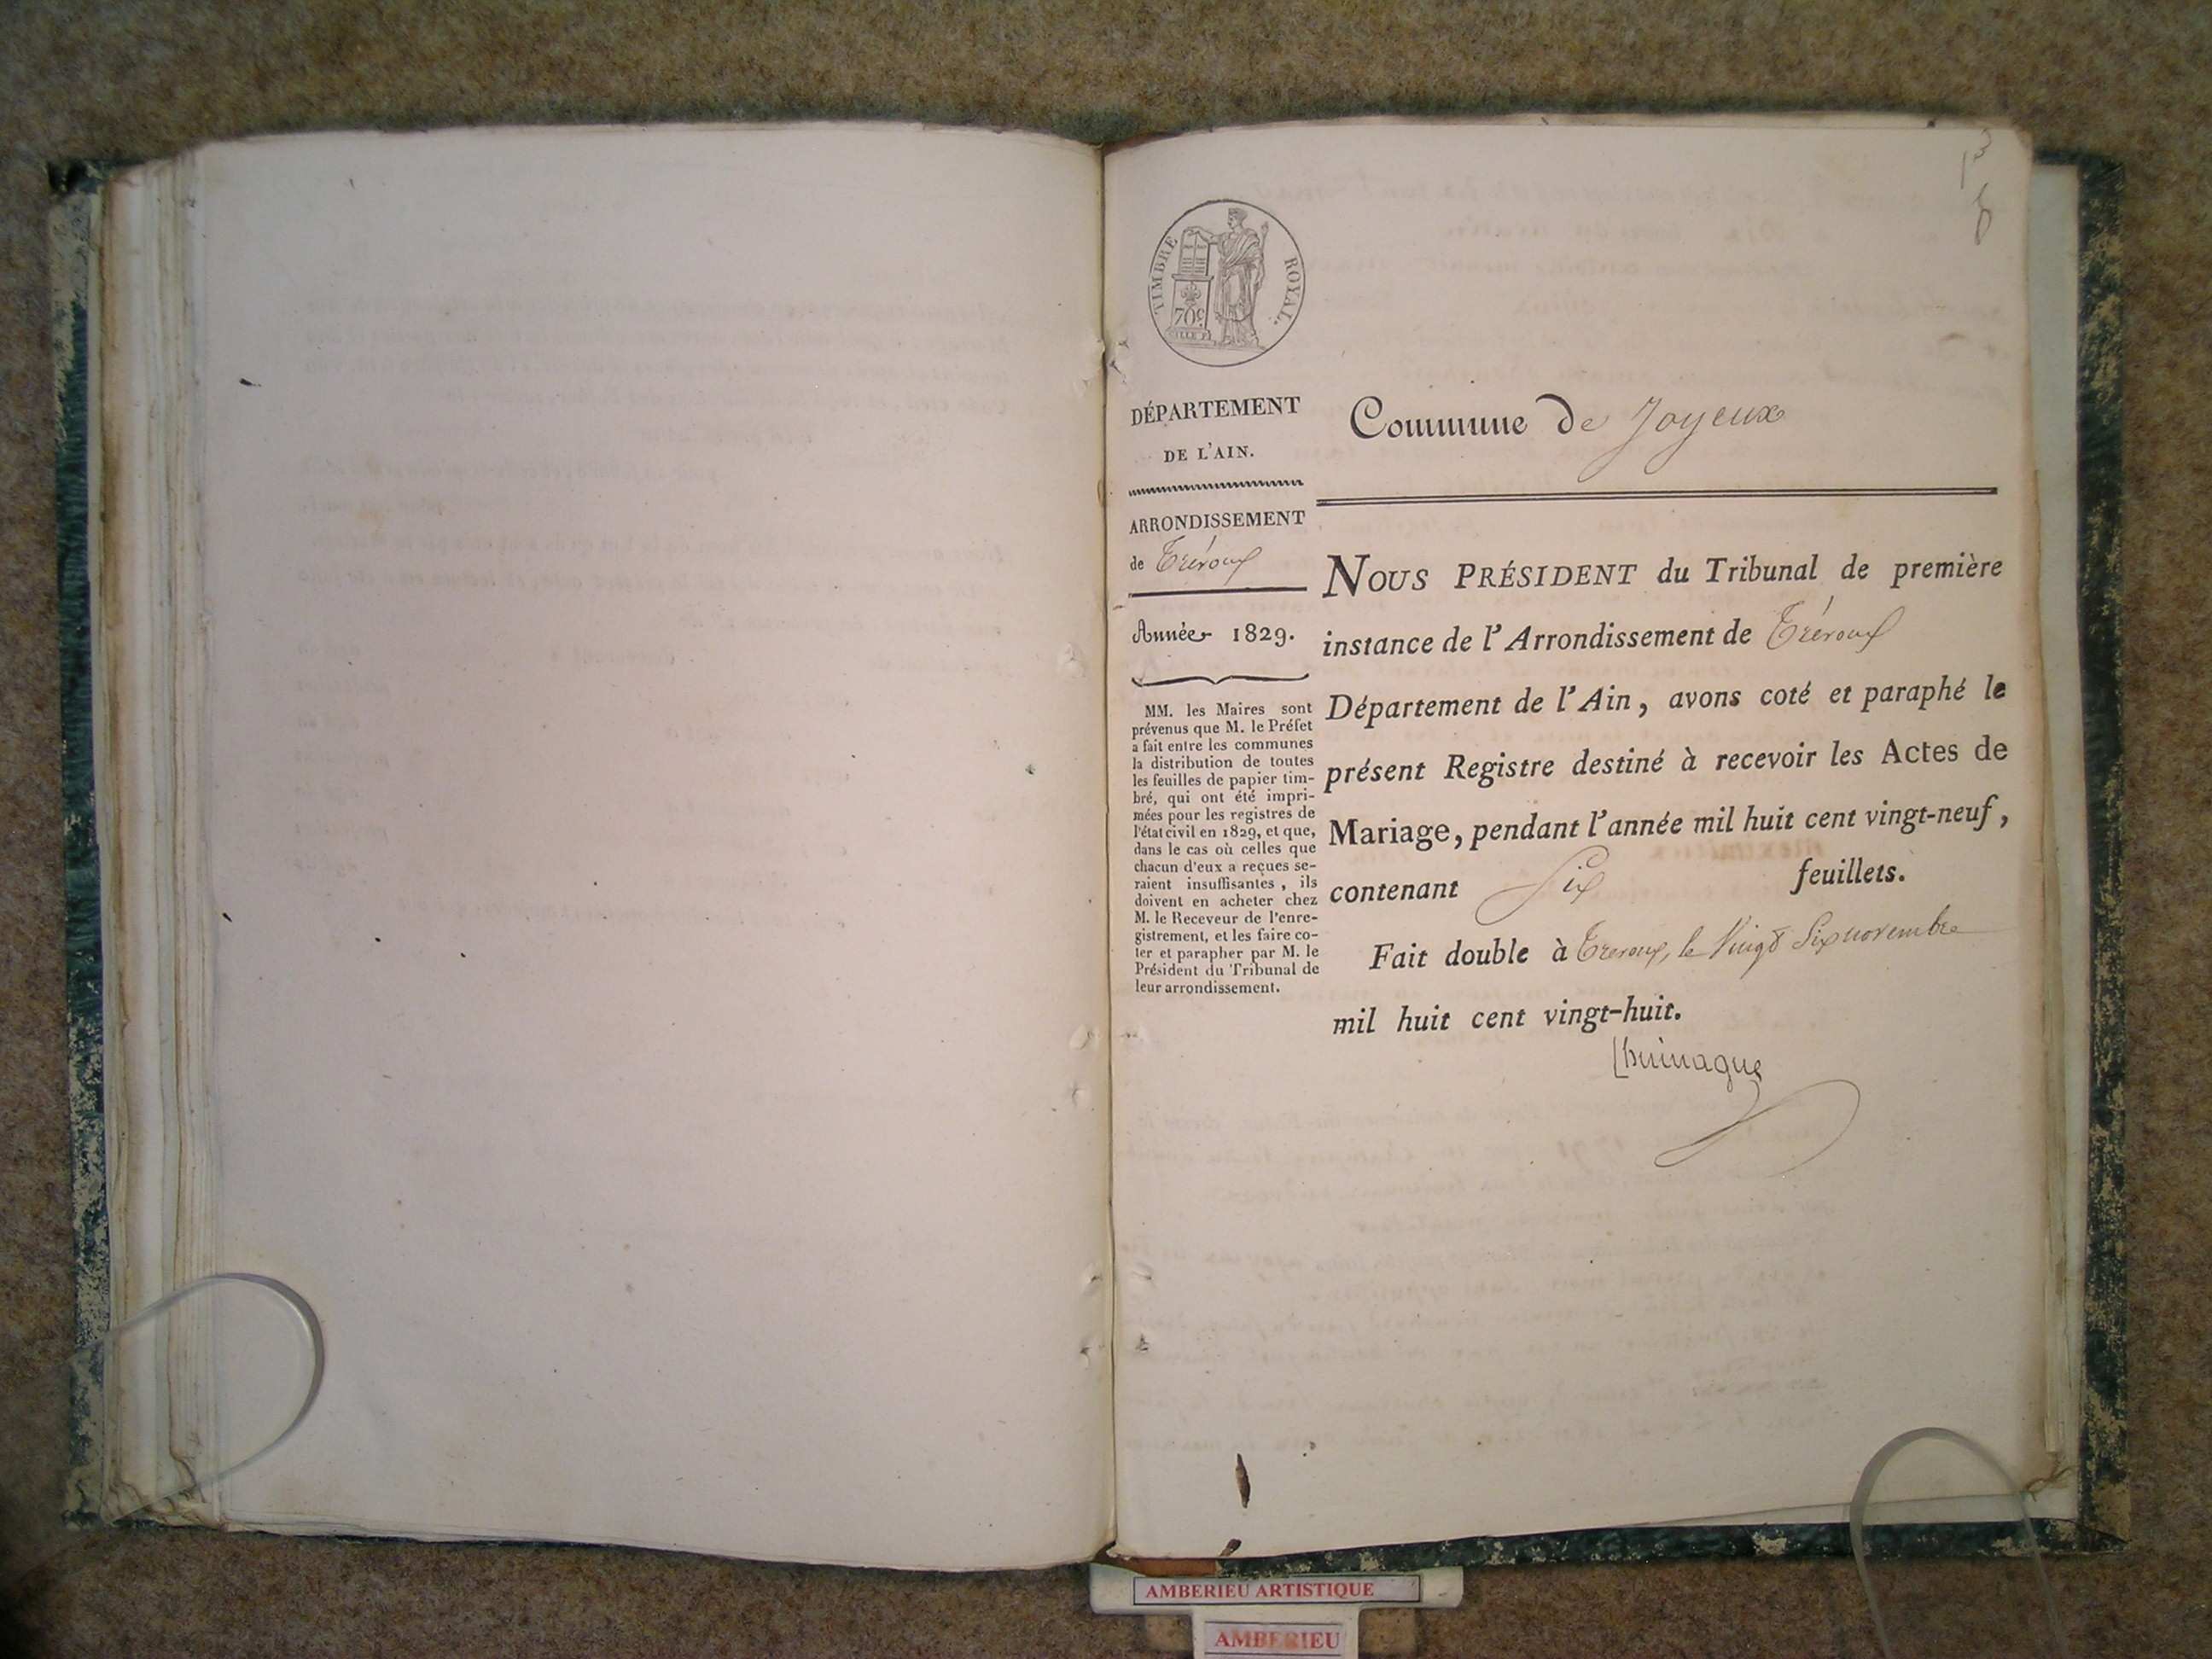 TIMBRE ROYAL.
70c
DÉPARTEMENT
DE L'AIN.
ARRONDISSEMENT
de Trévoux
Année 1829.
MM. les Maires sont
prévenus que M. le Préfet
a fait entre les communes
la distribution de toutes
les feuilles de papier tim-
bré, qui ont été impri-
mées pour les registres de
l'état civil en 1829, et que,
dans le cas où celles que
chacun d'eux a reçues se-
raient insuffisantes, ils
doivent en acheter chez
M. le Receveur de l'enre-
gistrement, et les faire co-
ter et parapher par M. le
Président du Tribunal de
leur arrondissement.
Commune de Joyeux
NOUS PRÉSIDENT du Tribunal de première
instance de l'Arrondissement de Trévoux
Département de l'Ain, avons coté et paraphé le
présent Registre destiné à recevoir les Actes de
Mariage, pendant l'année mil huit cent vingt-neuf,
contenant Six feuillets.
Fait double à Trevoux, le Vingt Six novembre
mil huit cent vingt-huit.
AMBERIEU ARTISTIQUE
AMBERIEU